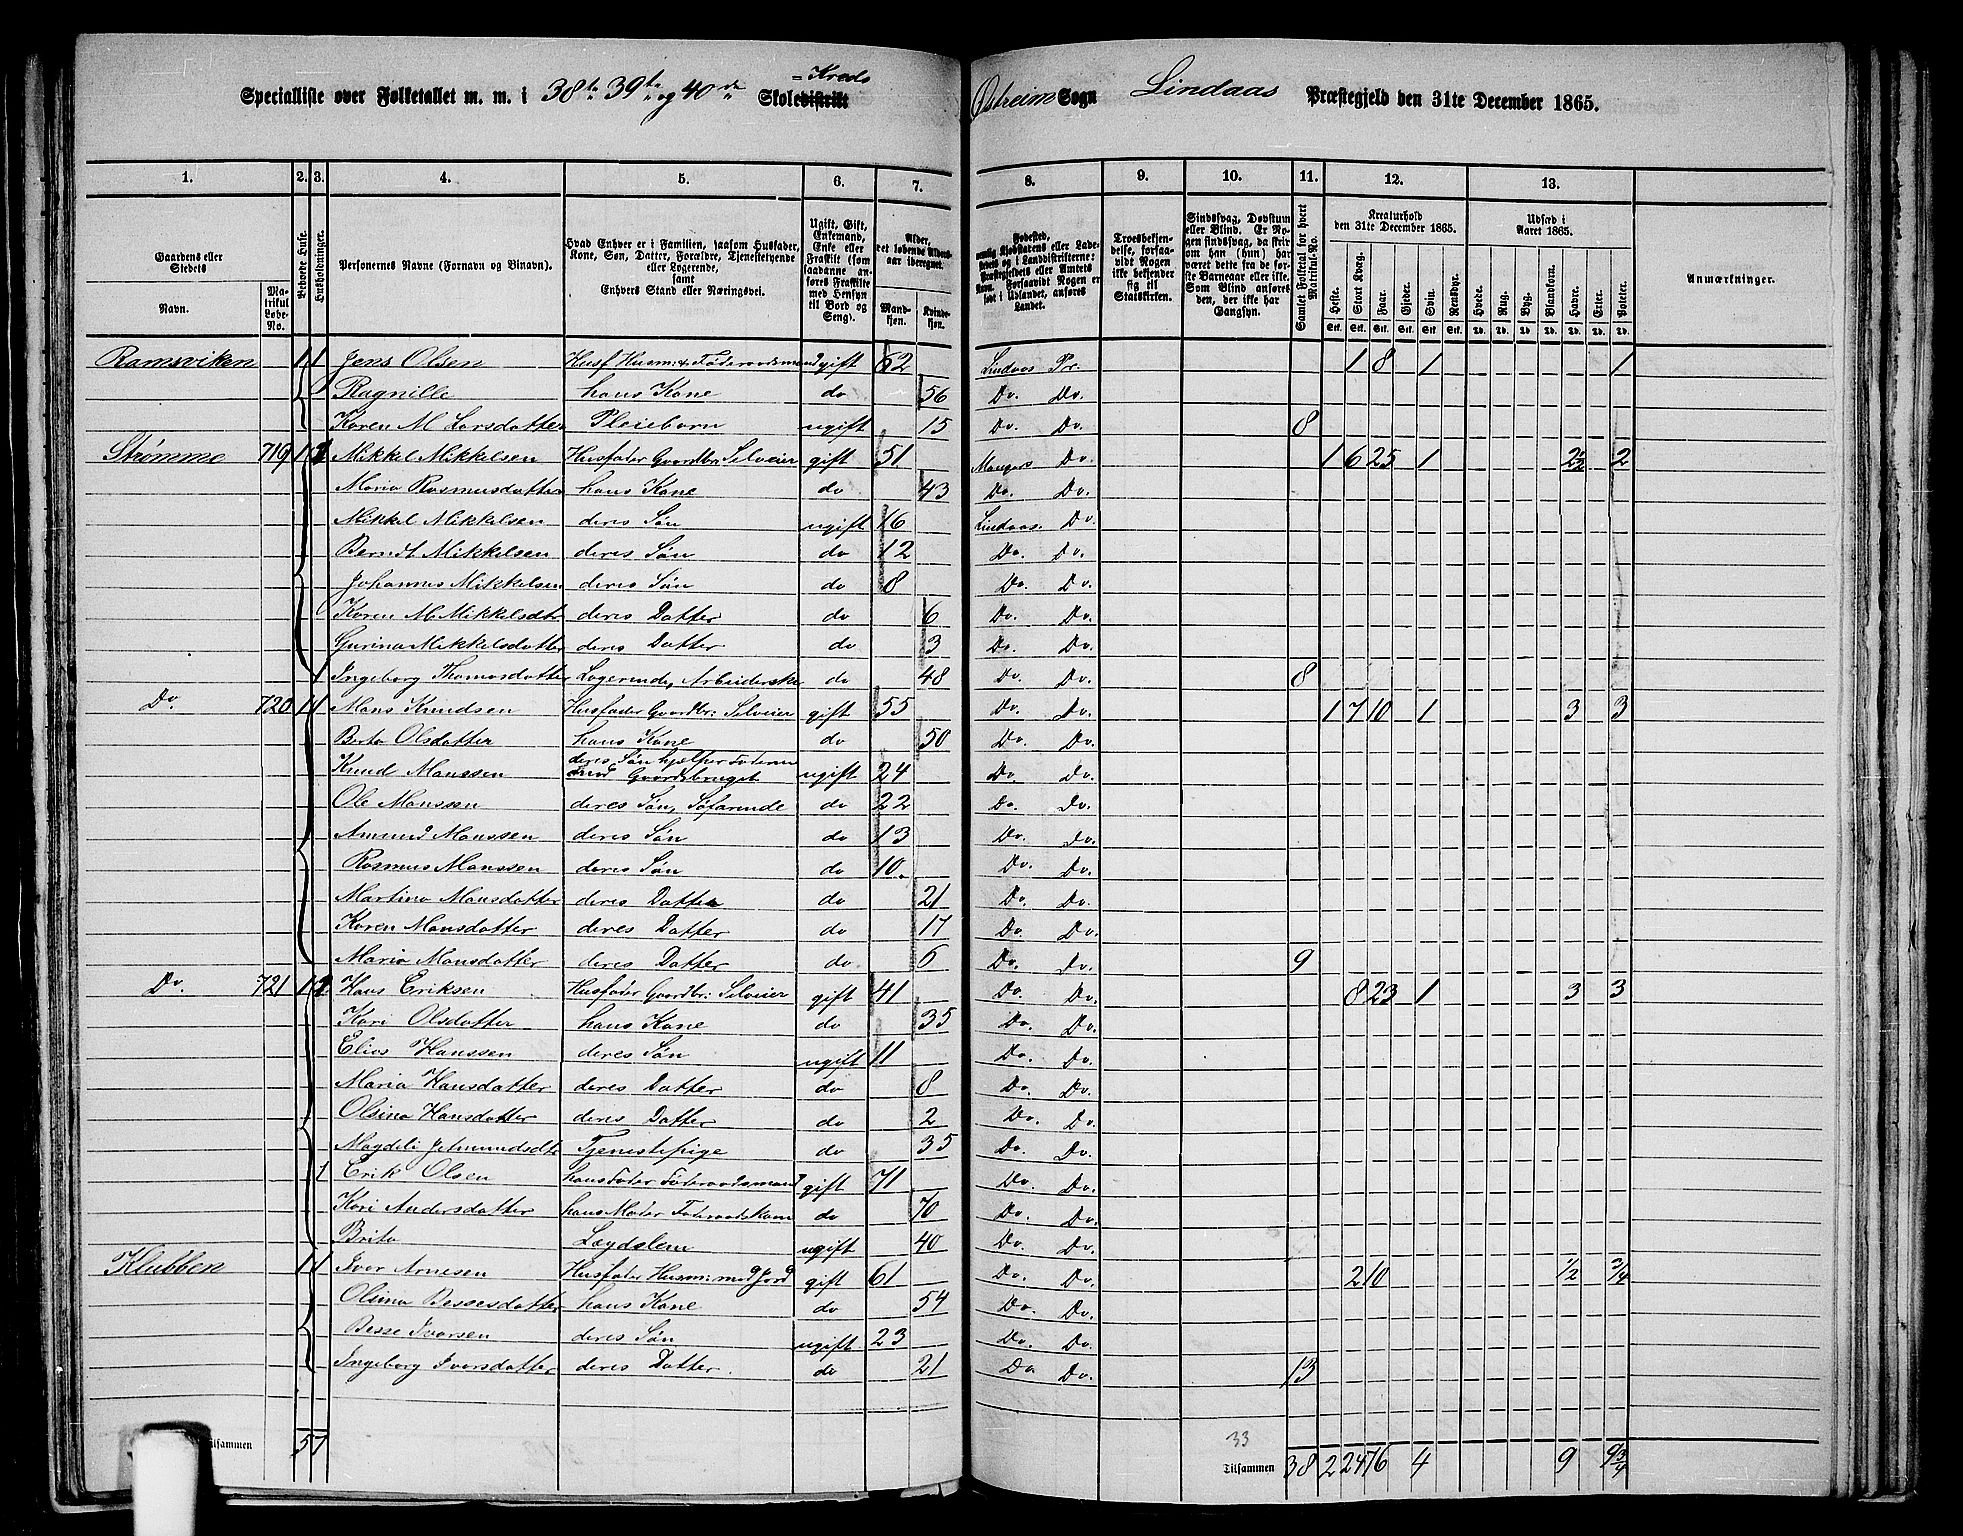 Specialliste over Folketallet m. m. i 38te 39te og 40de Skoledistrikt =Kreds Østreim Sogn Lindaas Præstegjeld den 31te December 1865.
1. 2. 3. 4. 5. 6. 7. 8. 9. 10. 11. 12. 13.
Gaardens eller Stedets
Navn.
Matrikul Løbe-No.
Beboede Huse.
Husholdninger.
Personernes Navne (Fornavn og Binavn).
Hvad Enhver er i Familien, saasom Husfader, Kone, Søn, Datter, Forældre, Tjenestetyende eller Logerende, samt Enhvers Stand eller Næringsvei.
Ugift, Gift, Enkemand, Enke eller Fraskilt (som saadanne anføres Fraskilte med Hensyn til Bord og Seng).
Alder, det løbende Alders-aar iberegnet.
Mandkjøn. Kvindekjøn.
Fødested,
Troesbekjendelse, forsaavidt Nogen ikke bekjender sig til Statskirken.
Sindssvag, Døvstum eller Blind. Er Nogen sindssvag, da skriv om han (hun) har været dette fra de første Barneaar eller ikke. Som Blind anføres den, der ikke har Gangsyn.
Samlet Folketal for hvert Matrikul-No.
Kreaturhold den 31te December 1865.
Heste. Stort Kvæg. Faar. Gjeder. Svin. Rensdyr.
Udsæd i Aaret 1865.
Hvede. Rug. Byg. Blandkorn. Havre. Erter. Poteter.
Anmærkninger.
Ramsviken 1 1 Jens Olsen Husf Husm: & Föderaadsmand gift 62 Lindaas Pr. 1 8 1 1
Ragnille hans Kone do 56 Do. Do.
Karen M Larsdatter Pleiebarn ugift 15 Do. Do. 8
Strømme 719 1 2 Mikkel Mikkelsen Husfader Gaardbr: Selveier gift 51 Mangers Do. 1 6 25 1 2½ 2
Maria Rasmusdatter hans Kone do 43 Do. Do.
Mikkel Mikkelsen deres Søn ugift 16 Lindaas. Do.
Berndt Mikkelsen deres Søn do 12 Do. Do.
Johannes Mikkelsen deres Søn do 8 Do. Do.
Karen M Mikkelsdtr deres Datter do 6 Do. Do.
Gurina Mikkelsdatter deres Datter do 3 Do. Do.
1 Ingeborg Thomasdatter Logerende, Arbeiderske do 48 Do. Do. 8
Do. 720 1 1 Mons Knudsen Husfader Gaardbr: Selveier gift 55 Do. Do. 1 7 10 1 3 3
Berta Olsdatter hans Kone do 50 Do. Do.
Knud Monssen deres Søn hjelper Faderen med Gaardsbruget ugift 24 Do. Do.
Ole Monssen deres Søn, Søfarende do 22 Do. Do.
Amund Monssen deres Søn do 13 Do. Do.
Rasmus Monssen deres Søn do 10. Do. Do.
Martina Monsdatter deres Datter do 21 Do. Do.
Karen Monsdatter deres Datter do 17 Do. Do.
Maria Monsdatter deres Datter do 6 Do. Do. 9
Do. 721 1 2 Hans Eriksen Husfader Gaardbr: Selveier gift 41 Do. Do. 8 23 1 3 3
Kari Olsdatter hans Kone do 35 Do. Do.
Elias Hanssen deres Søn ugift 11 Do. Do.
Maria Hansdatter deres Datter do 8 Do. Do.
Olsina Hansdatter deres Datter do 2 Do. Do.
Magdeli Jetmundsdtr Tjenestepige do 35 Do. Do.
1 Erik Olsen hans Fader Föderaadsmand gift 71 Do. Do.
Kari Andersdatter hans Moder Föderaadskone do 70 Do. Do.
Brita Lægdslem ugift 40 Do. Do.
Klubben 1 1 Iver Arnesen Husfader Husm: med Jord gift 61 Do. Do. 2 10 1/2 3/4
Olsina Bessesdatter hans Kone do 54 Do. Do.
Besse Iversen deres Søn ugift 23 Do. Do.
Ingeborg Iversdatter deres Datter. do 21 Do Do. 13
33
Tilsammen 5 7 Tilsammen 38 2 24 76 4 9 9¾